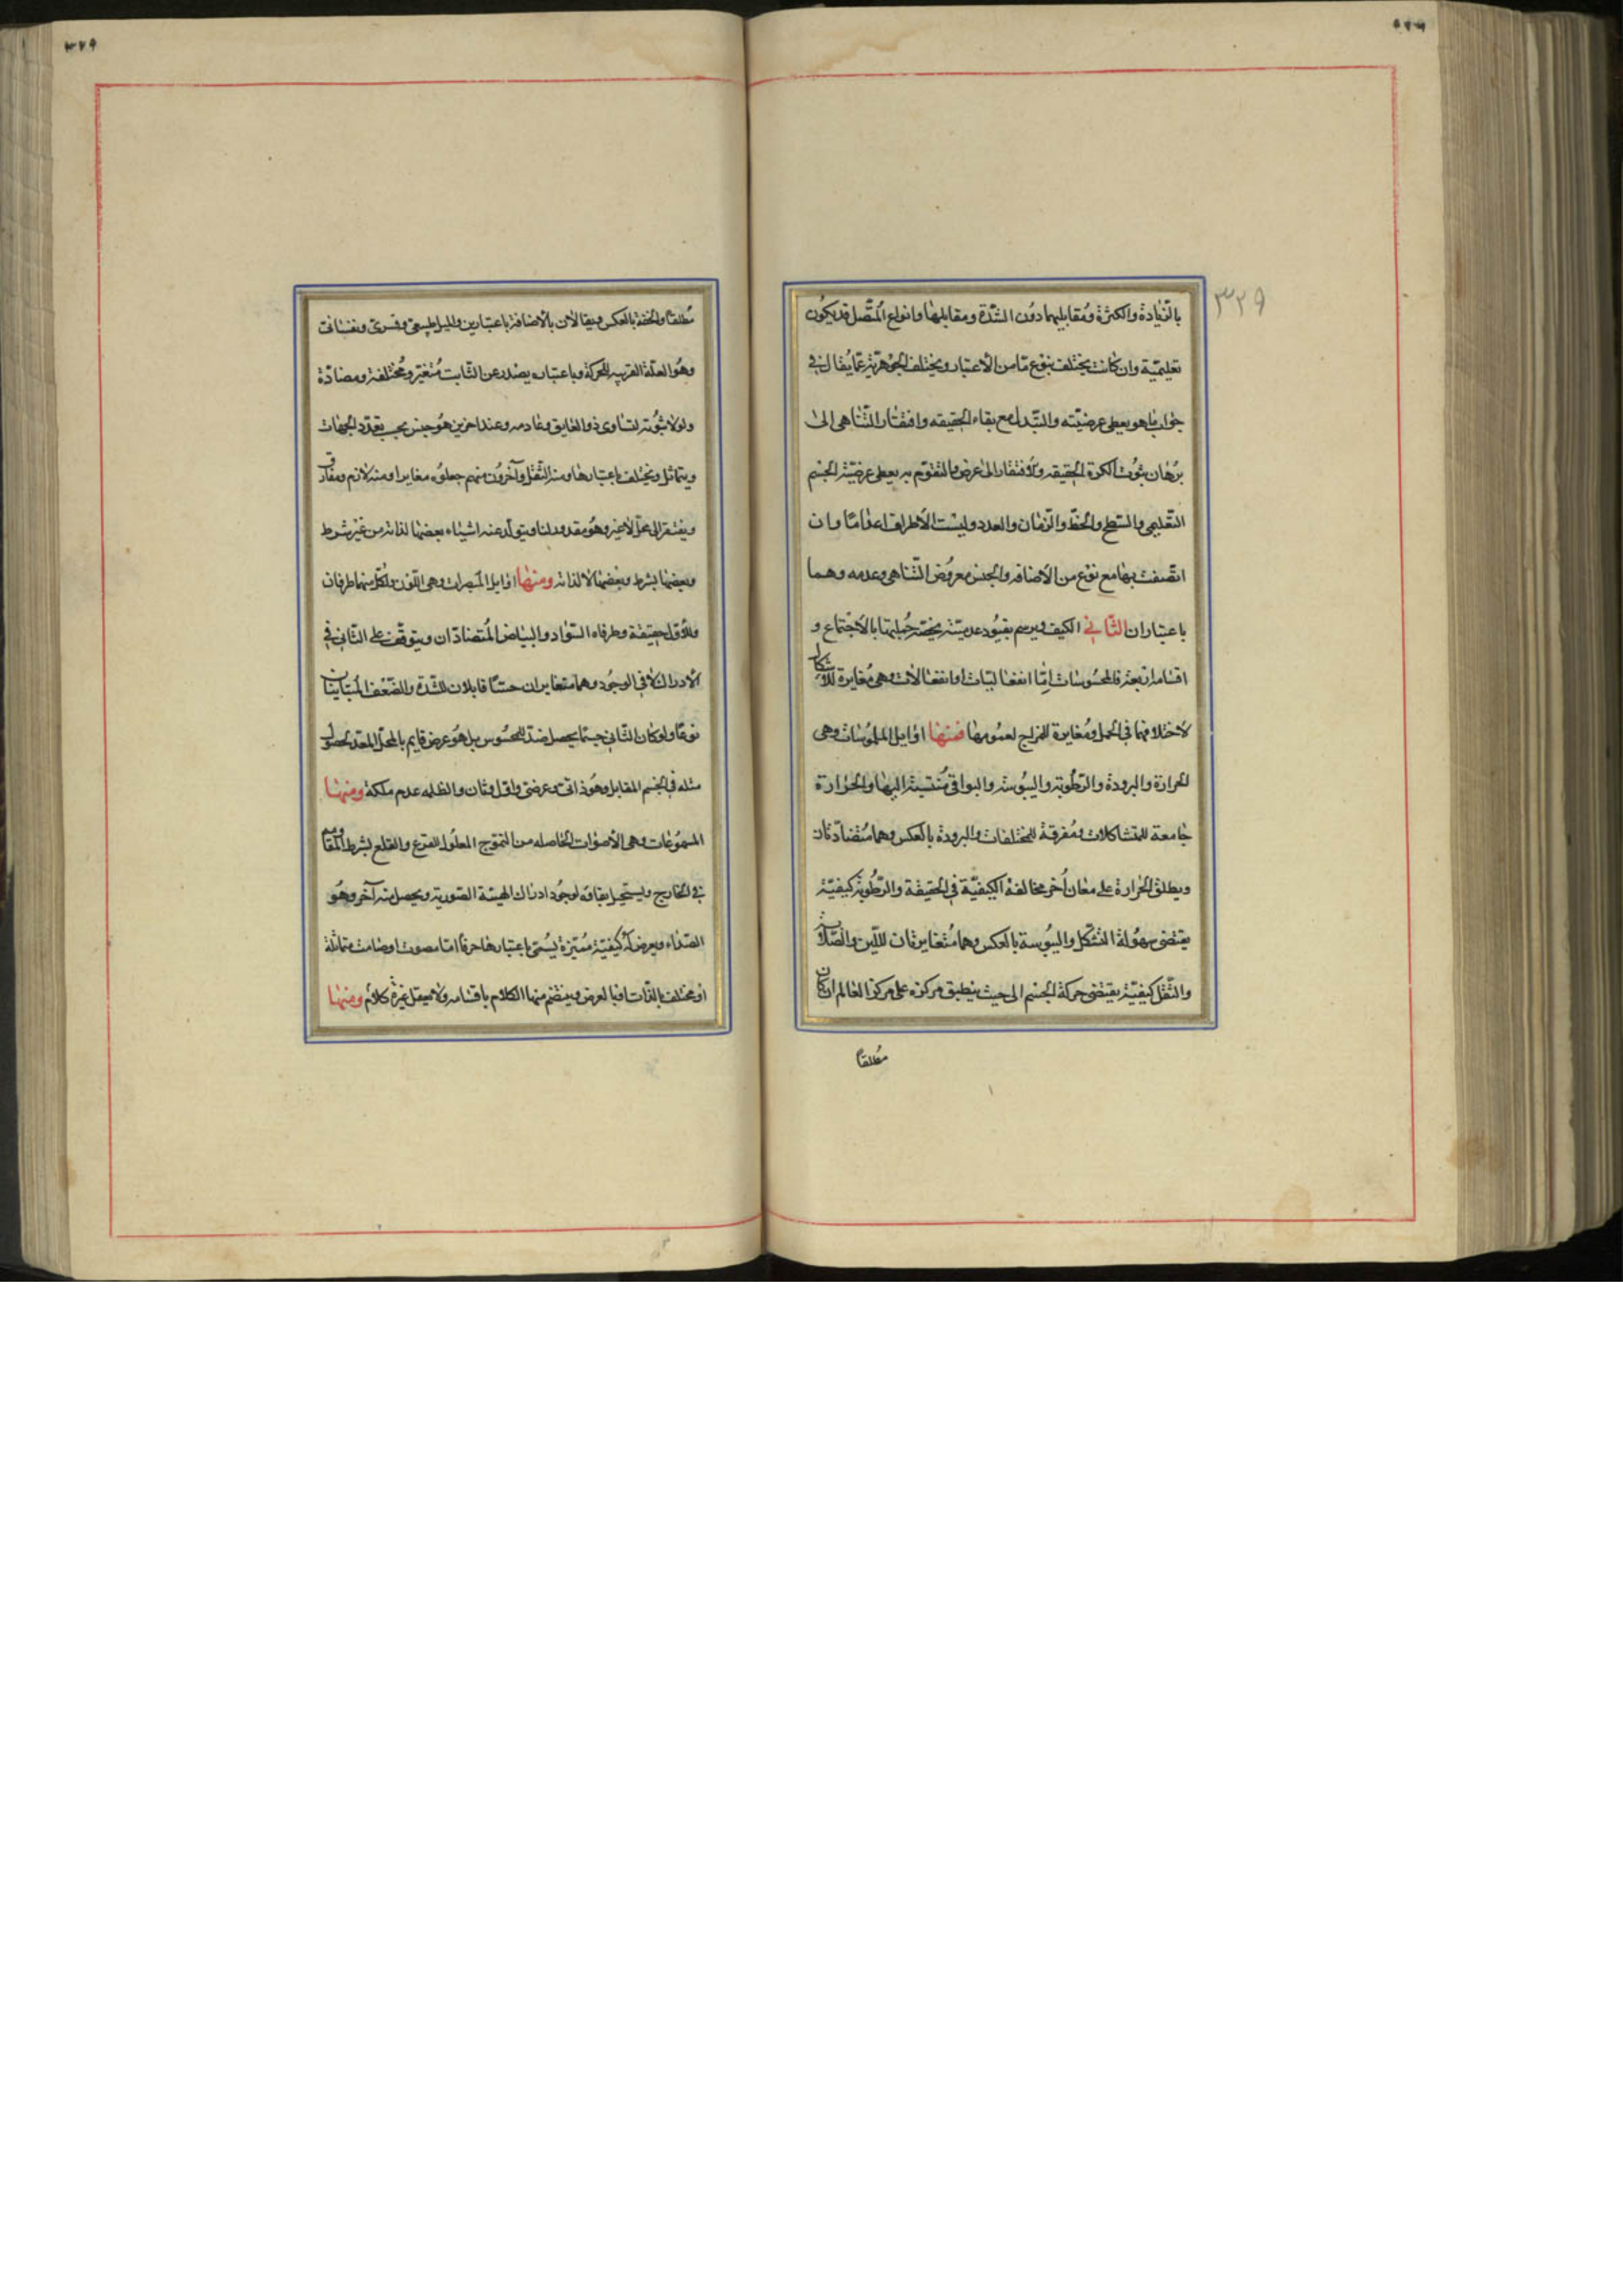 بالزّيادة والكثرة ومُقابليهما دوُن الشدّة ومقابلها وانواع المتّصل قد يكُون
تعليميّة وان كانت يختلف بنوع مّا من الاعتبار ويختلف الجوهريّة عمّا يُقال في
جواب ما هو يعطى عرضيّته والتبّدل مع بقاء الحقيقه وافتقار التّناهى الى
برُهان بثوُت الكرة الحقيقه والافتقار الى عرض والتقوّم به يعطى عرضيّة الجسم
التّعليمى والسّطح والخطّ والزّمان والعدد وليست الاطراف اعداماً وان
اتّصفت بها مع نوع من الاضافه والجنس معروُض التّناهى وعدمه وهما
باعتباران الثّانى الكيف ويرسم بقيُود عدميّته يخصّه جُمليتها بالاجتماع و
اقسامه اربعة فالمحسُوسات امّا انفعاليّات او انفعالات وهى مُغايرة للاشكال
لاختلافها فى الحمل ومُغايرة للمزاج لعمُومها فمنها اوايل الملمُوسات وهى
الحرارة والبرودة والرّطُوبة واليبُوسة والبواقى مُنتسبة اليها والحرارة
جامعة للمتشاكلات ومُفرقة للمختلفات والبرودة بالعكس وهما مُتضادّتان
ويطلق الحرارة على معان اُخر مخالفة الكيفيّة فى الحقيقة والرّطُوبة كيفيّة
يقتضى سهُولة التشكّل واليبُوسة بالعكس وهما مُتغايرتان لللّين والصّلابة
والثّقل كيفيّة يقتضى حركة الجسم الى حيث ينطبق مركزه على مركز العالم ان كان
مُطلقاً
٣٢٩
مُطلقاً والخفة بالعكس ويقالان بالاضافة باعتبارين والميل طبيعى وقسرىّ ونفسانى
وهُو العلّة القريبه للحركة وباعتباره يصدر عن الثّابت مُتغيّر ومُختلفة ومضادّة
ولولا ثبُوته لتساوى ذو العايق وعادمه وعند اخرين هُو جنس بحسب تعدّد الجهات
ويتماثل ويختلف باعتبارها ومنه الثّقل وآخروُن منهم جعلوُه مغايرا ومنه لازم ومفارق
ويفتقر الى محلّ لا غير وهُو مقدور لنا ويتولّد عنه اشياء بعضها لذاته من غير شرط
وبعضها بشرط وبعضها لا لذاته ومنها اوايل المبصرات وهى اللّون ولكلّ منهما طرفان
وللاوّل حقيقة وطرفاه السّواد والبياض المُتضادّان ويتوقّف على الثّانى فى
الادراك لا فى الوجُود وهما متغايران حسّاً قابلان للشّدّة والضّعف المتباينان
نوعاً ولو كان الثّانى جسما يحصل ضدّ المحسُوس بل هُو عرض قايم بالمحلّ المعدّ لحصُول
مثله فى الجسم المقابل وهُو ذاتى وعرضى واوّل وثان والظلمه عدم ملكة ومنها
المسمُوعات وهى الاصوات الحاصله من التّموّج المعلُول للقرع والقلع بشرط المقاومة
فى الخارج ويستحيل بقاؤه لوجُود ادراك الهيئة الصّوريّة ويحصل منه آخر وهُو
الصّداء ويعرض له كيفيّة مُميّزة يسُمّى باعتبارها حرفاً امّا مصوت او صامت متماثلة
او مختلف بالذّات او بالعرض وينتظم منها الكلام باقسامه ولا يعقل غيره كلامٌ ومنها